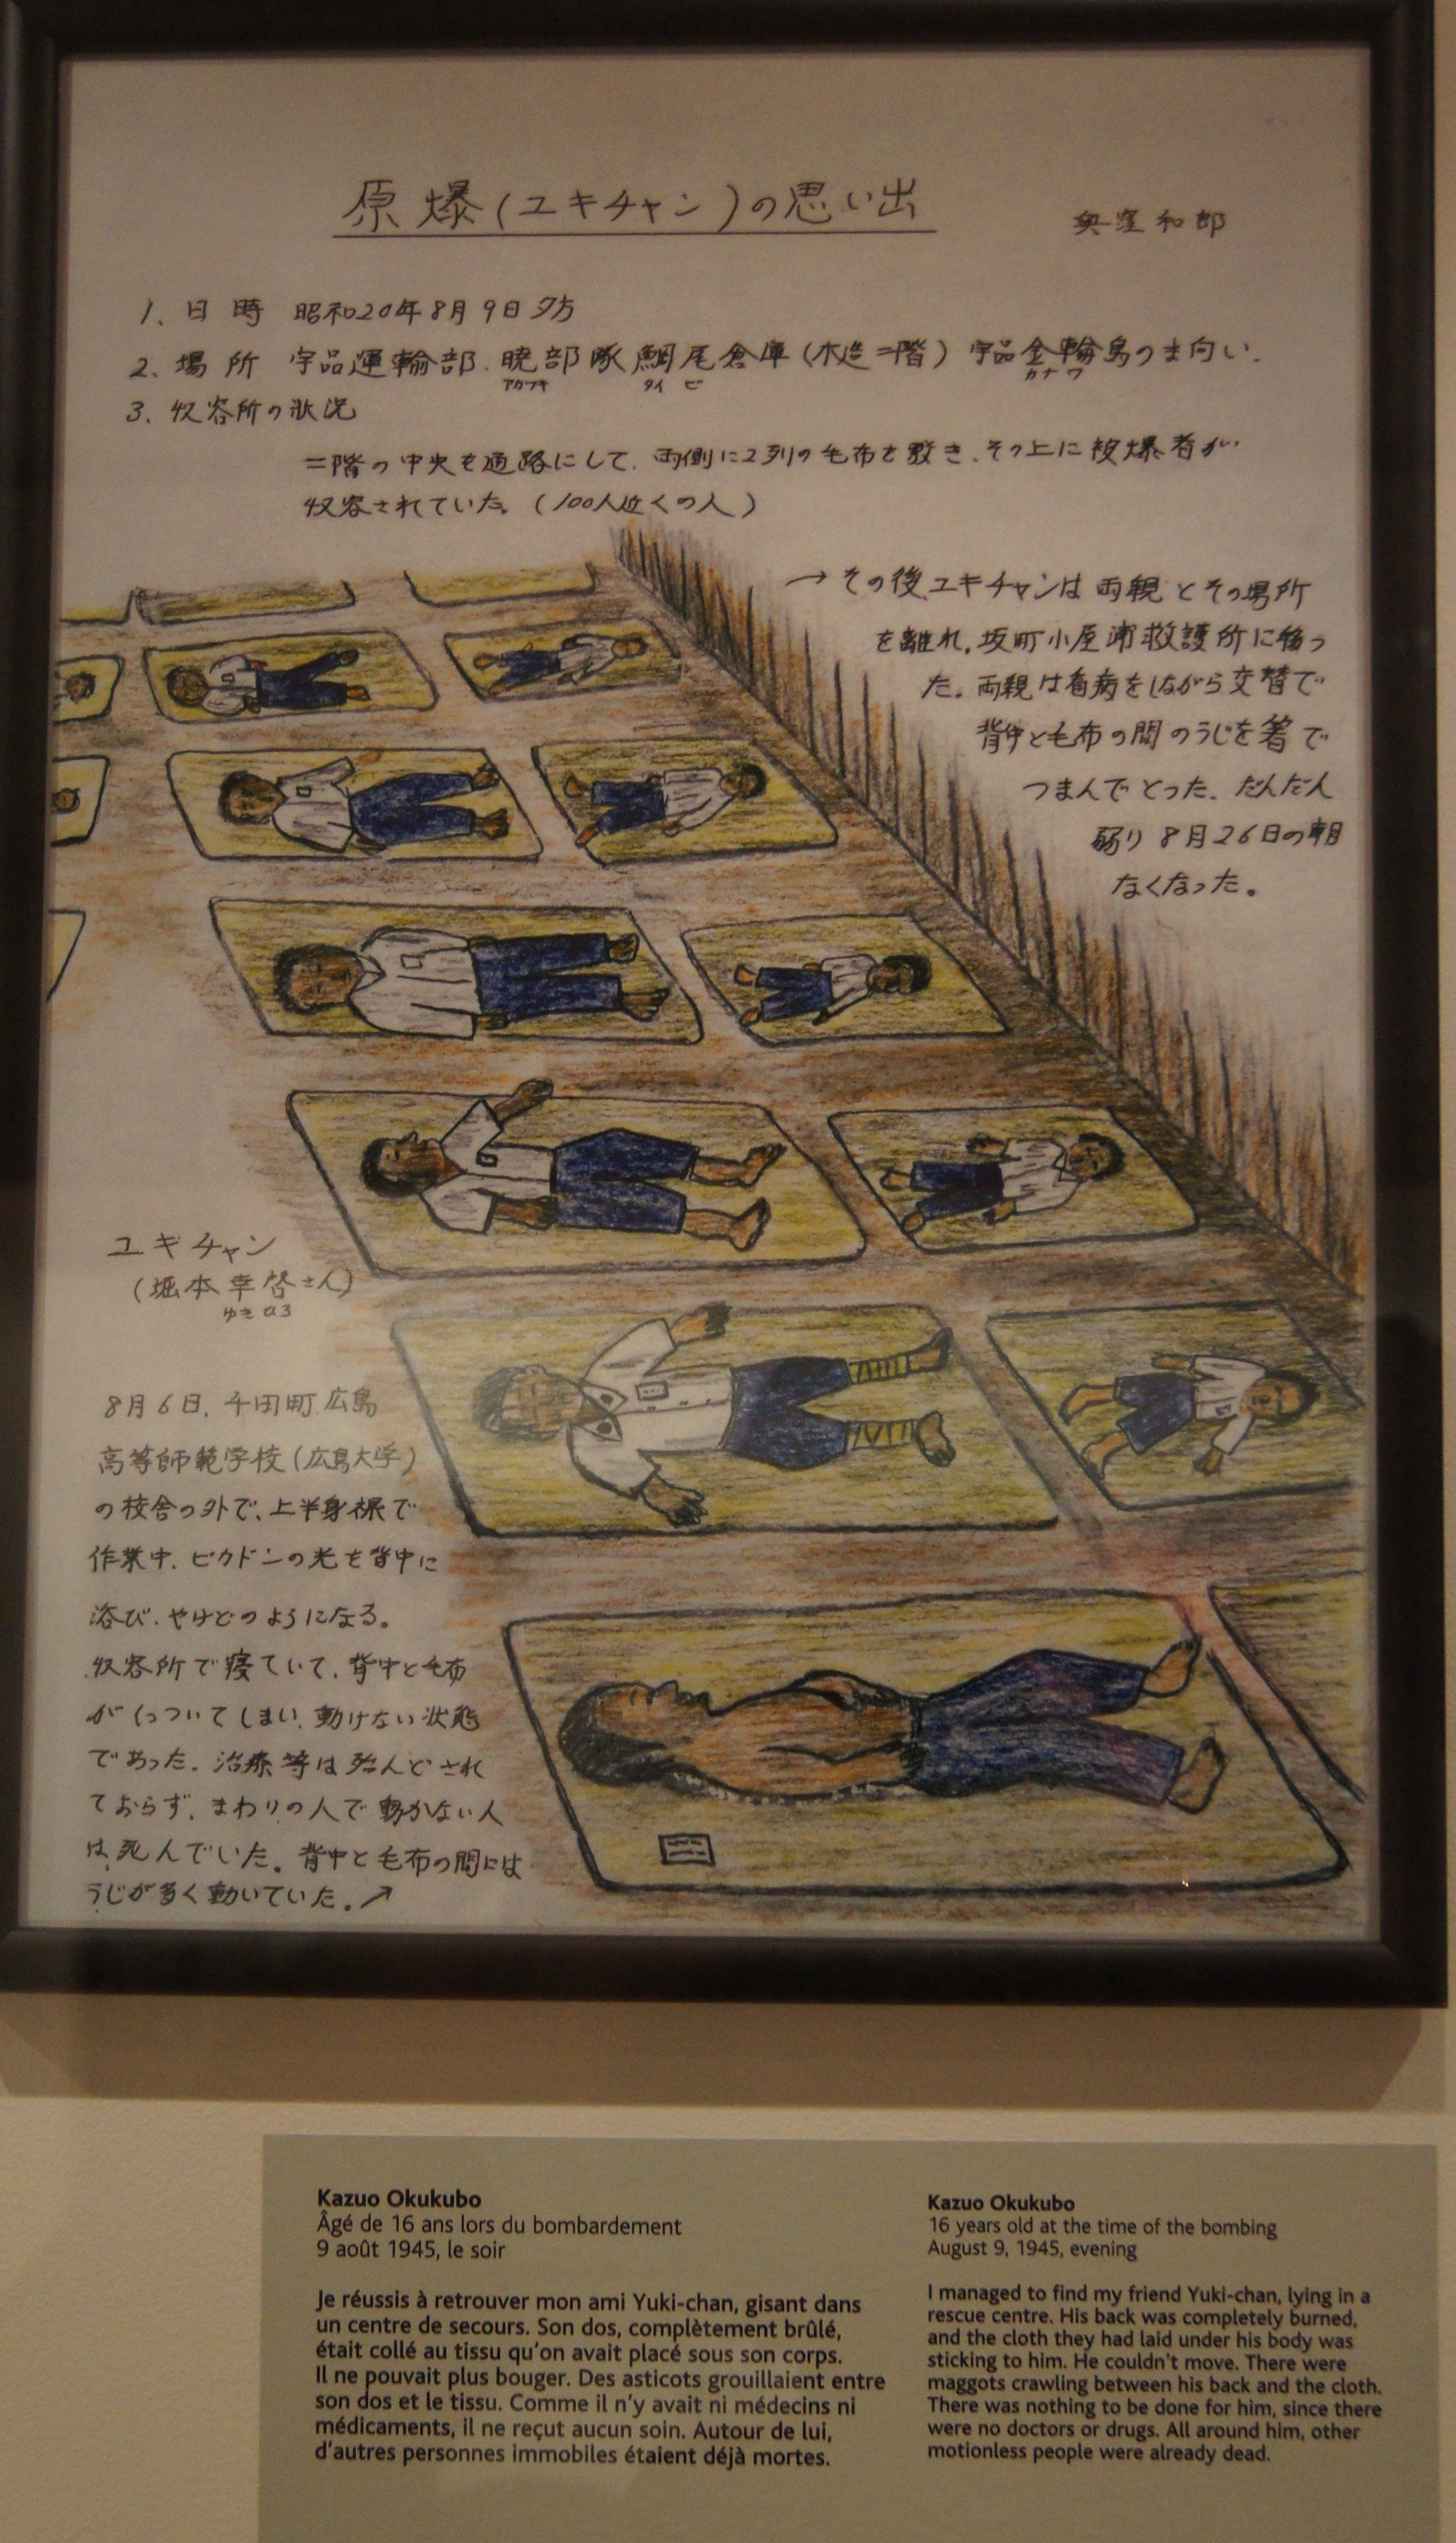 原爆(ユキチャン)の思い出
奥窪和郎
1、日時 昭和20年8月9日夕方
2、場所 宇品運輸部.暁部隊鯛尾倉庫(木造二階)宇品金輪島のま向い.
アカツキ タイ ビ カナワ
3、収容所の状況
二階の中央を通路にして、両側に2列の毛布を敷き、その上に被爆者が
収容されていた。(100人近くの人)
→その後、ユキチャンは両親とその場所
を離れ、坂町小屋浦救護所に移っ
た。両親は看病をしながら交替で
背中と毛布の間のうじを箸で
つまんでとった。だんだん
弱り8月26日の朝
なくなった。
ユキチャン
(堀本幸啓さん)
ゆきひろ
8月6日、千田町広島
高等師範学校(広島大学)
の校舎の外で、上半身裸で
作業中、ピカドンの光を背中に
浴び、やけどのようになる。
収容所で寝ていて、背中と毛布
がくっついてしまい、動けない状態
であった。治療等は殆んどされ
ておらず、まわりの人で動かない人
は、死んでいた。背中と毛布の間には
うじが多く動いていた。↗
Kazuo Okukubo
Âgé de 16 ans lors du bombardement
9 août 1945, le soir
Je réussis à retrouver mon ami Yuki-chan, gisant dans
un centre de secours. Son dos, complètement brûlé,
était collé au tissu qu'on avait placé sous son corps.
Il ne pouvait plus bouger. Des asticots grouillaient entre
son dos et le tissu. Comme il n'y avait ni médecins ni
médicaments, il ne reçut aucun soin. Autour de lui,
d'autres personnes immobiles étaient déjà mortes.
Kazuo Okukubo
16 years old at the time of the bombing
August 9, 1945, evening
I managed to find my friend Yuki-chan, lying in a
rescue centre. His back was completely burned,
and the cloth they had laid under his body was
sticking to him. He couldn't move. There were
maggots crawling between his back and the cloth.
There was nothing to be done for him, since there
were no doctors or drugs. All around him, other
motionless people were already dead.